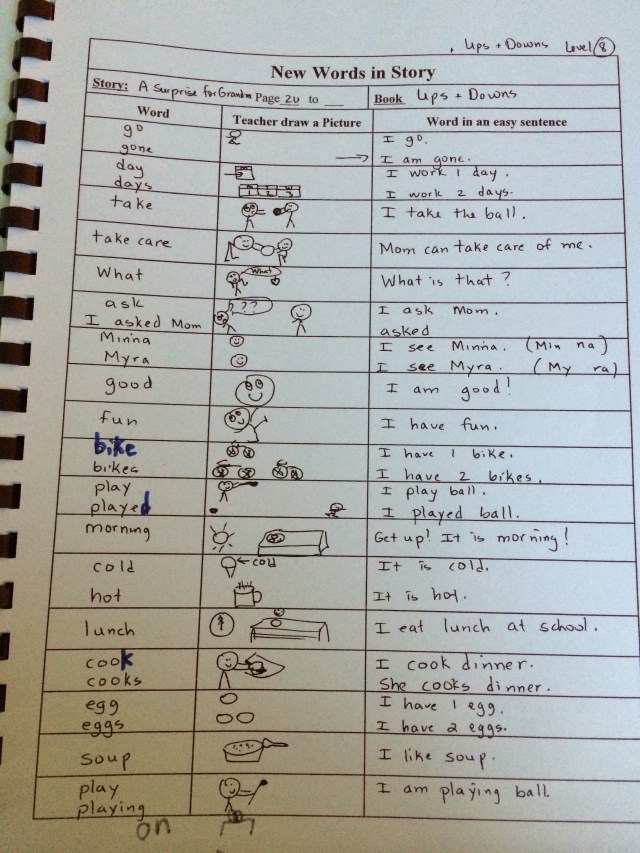 Ups + Downs Level 8
New Words in Story
Story: A Surprise for Grandma Page 20 to __ Book Ups + Downs
Word Teacher draw a Picture Word in an easy sentence
go I go.
gone I am gone.
day I work 1 day.
days I work 2 days.
take I take the ball.
take care Mom can take care of me.
What What What is that?
ask ?? I ask Mom.
I asked Mom asked
Minna I see Minna. (Min na)
Myra I see Myra. (My ra)
good I am good!
fun I have fun.
bike I have 1 bike.
bikes I have 2 bikes.
play I play ball.
played I played ball.
morning Get up! It is morning!
cold cold It is cold.
hot It is hot.
lunch I eat lunch at school.
cook I cook dinner.
cooks She cooks dinner.
egg I have 1 egg.
eggs I have 2 eggs.
soup I like soup.
play I am playing ball.
playing
on